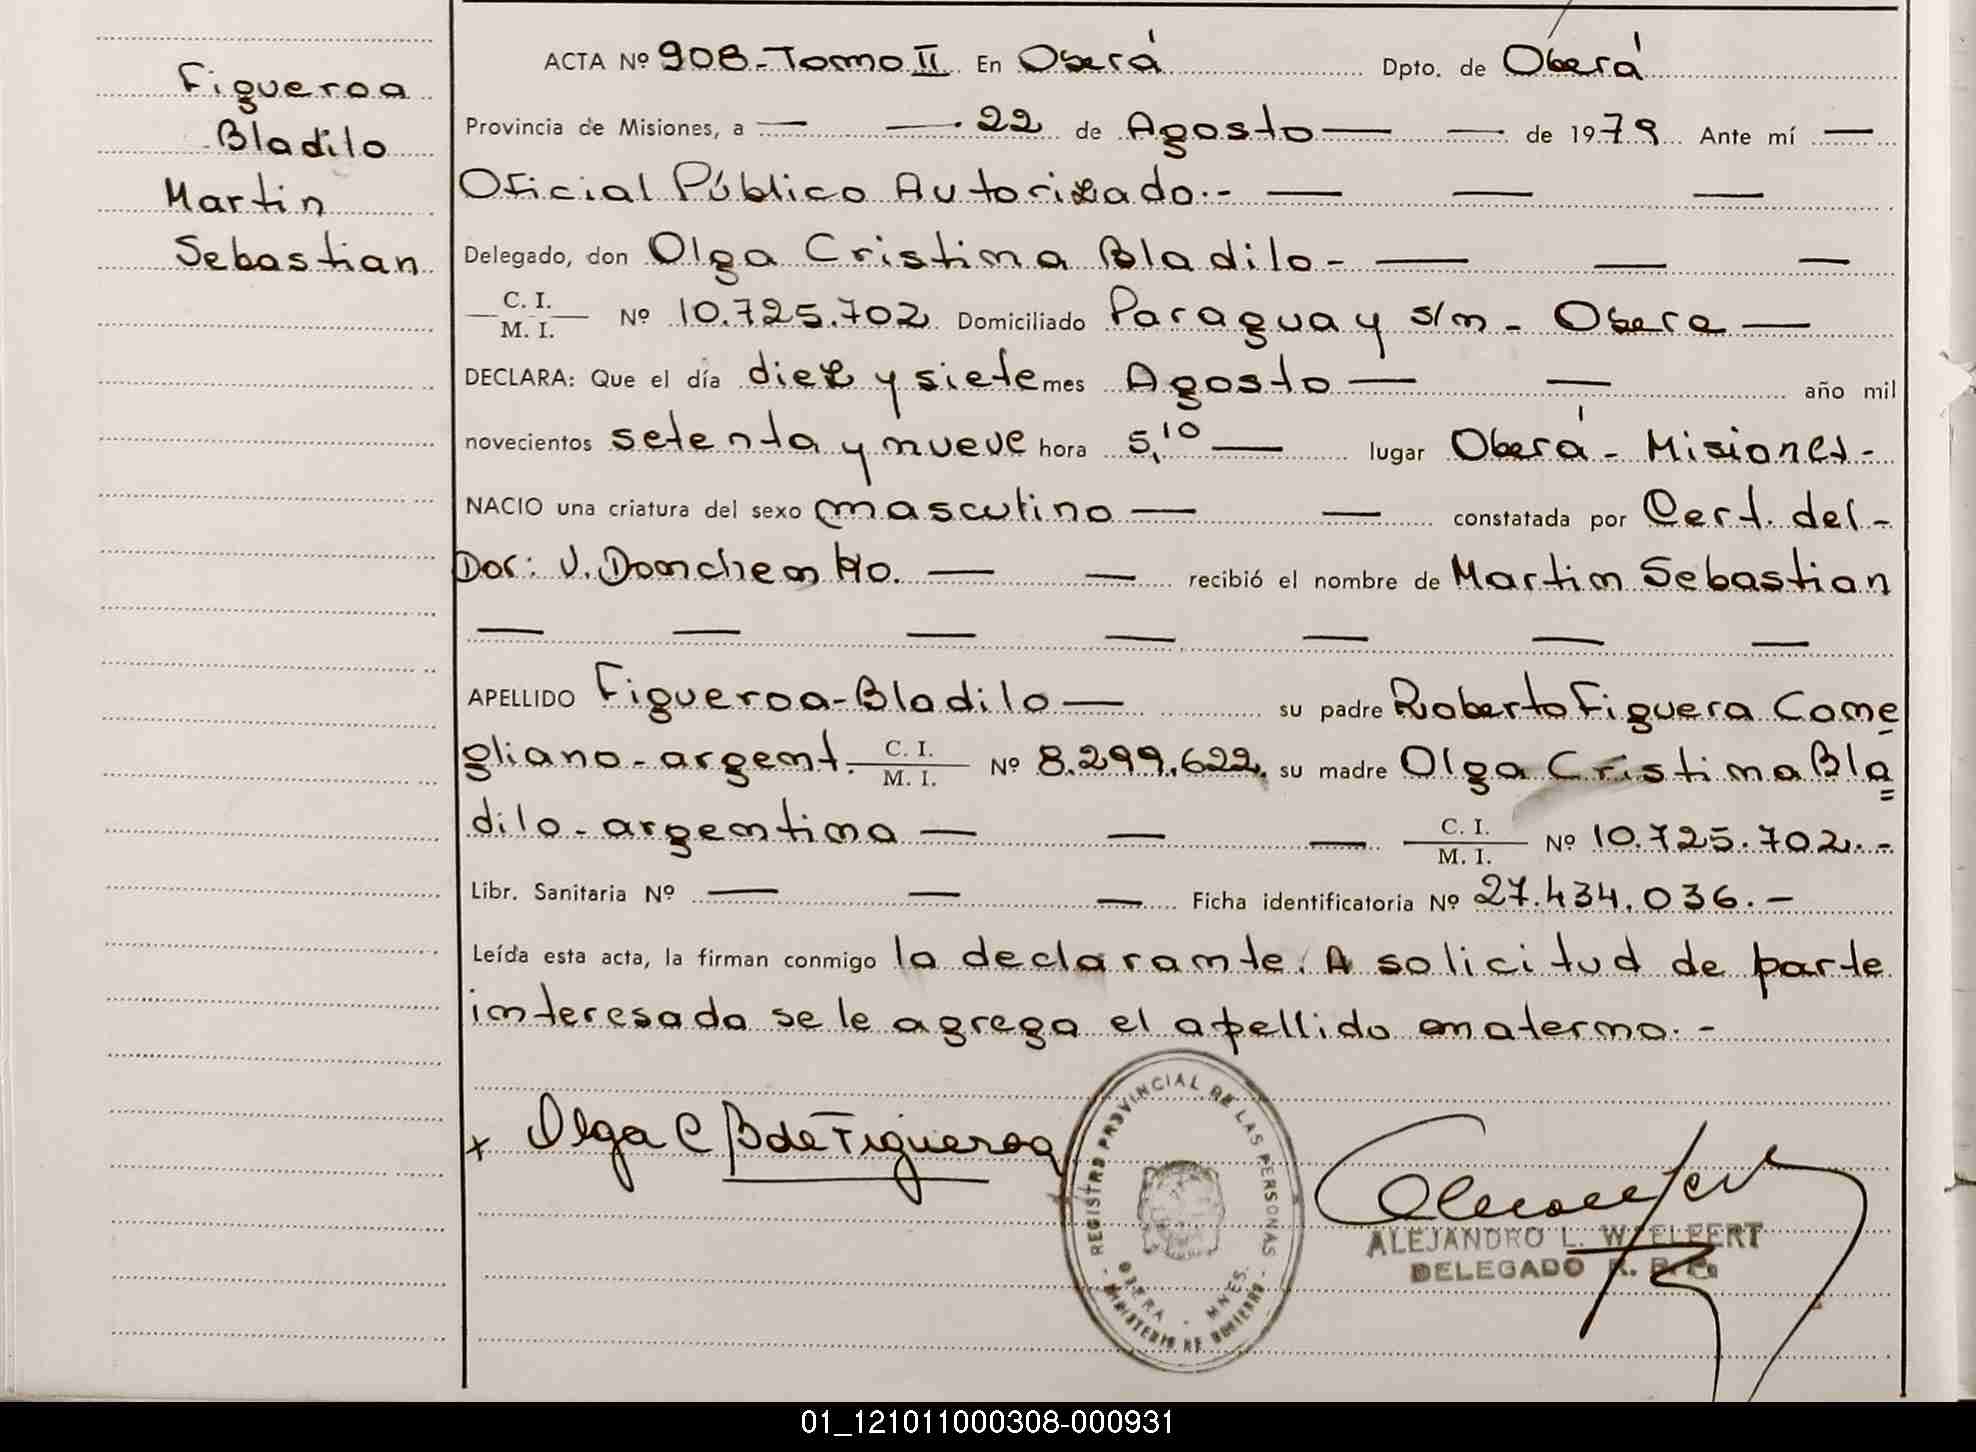 Figueroa
Bladilo
Martin
Sebastian
ACTA Nº 908-Tomo II En Oberá Dpto. de Oberá
Provincia de Misiones, a — — 22 de Agosto — — de 1979 Ante mí —
Oficial Público Autorizado.- — — —
Delegado, don Olga Cristina Bladilo - — — —
C. I.
M. I. Nº 10.725.702 Domiciliado Paraguay s/n - Obera —
DECLARA: Que el día diez y siete mes Agosto — — año mil
novecientos setenta y nueve hora 5,10 — lugar Oberá - Misiones -
NACIO una criatura del sexo masculino — — constatada por Cert. del -
Dor: V. Donchen Ho. — — recibió el nombre de Martin Sebastian
— — — — — — —
APELLIDO Figueroa-Bladilo — su padre Roberto Figuera Cone
gliano - argent. C. I.
M. I. Nº 8.299.622. su madre Olga Cristina Bla
dilo - argentina — — — C. I.
M. I. Nº 10.725.702.-
Libr. Sanitaria Nº — — — Ficha identificatoria Nº 27.434.036.-
Leída esta acta, la firman conmigo la declarante. A solicitud de parte
interesada se le agrega el apellido materno.-
x Olga C B de Figueroa
REGISTRO PROVINCIAL DE LAS PERSONAS
OBERA - MNES.
MINISTERIO DE GOBIERNO
ALEJANDRO L. W. ELFERT
DELEGADO R. P. P.
01_121011000308-000931